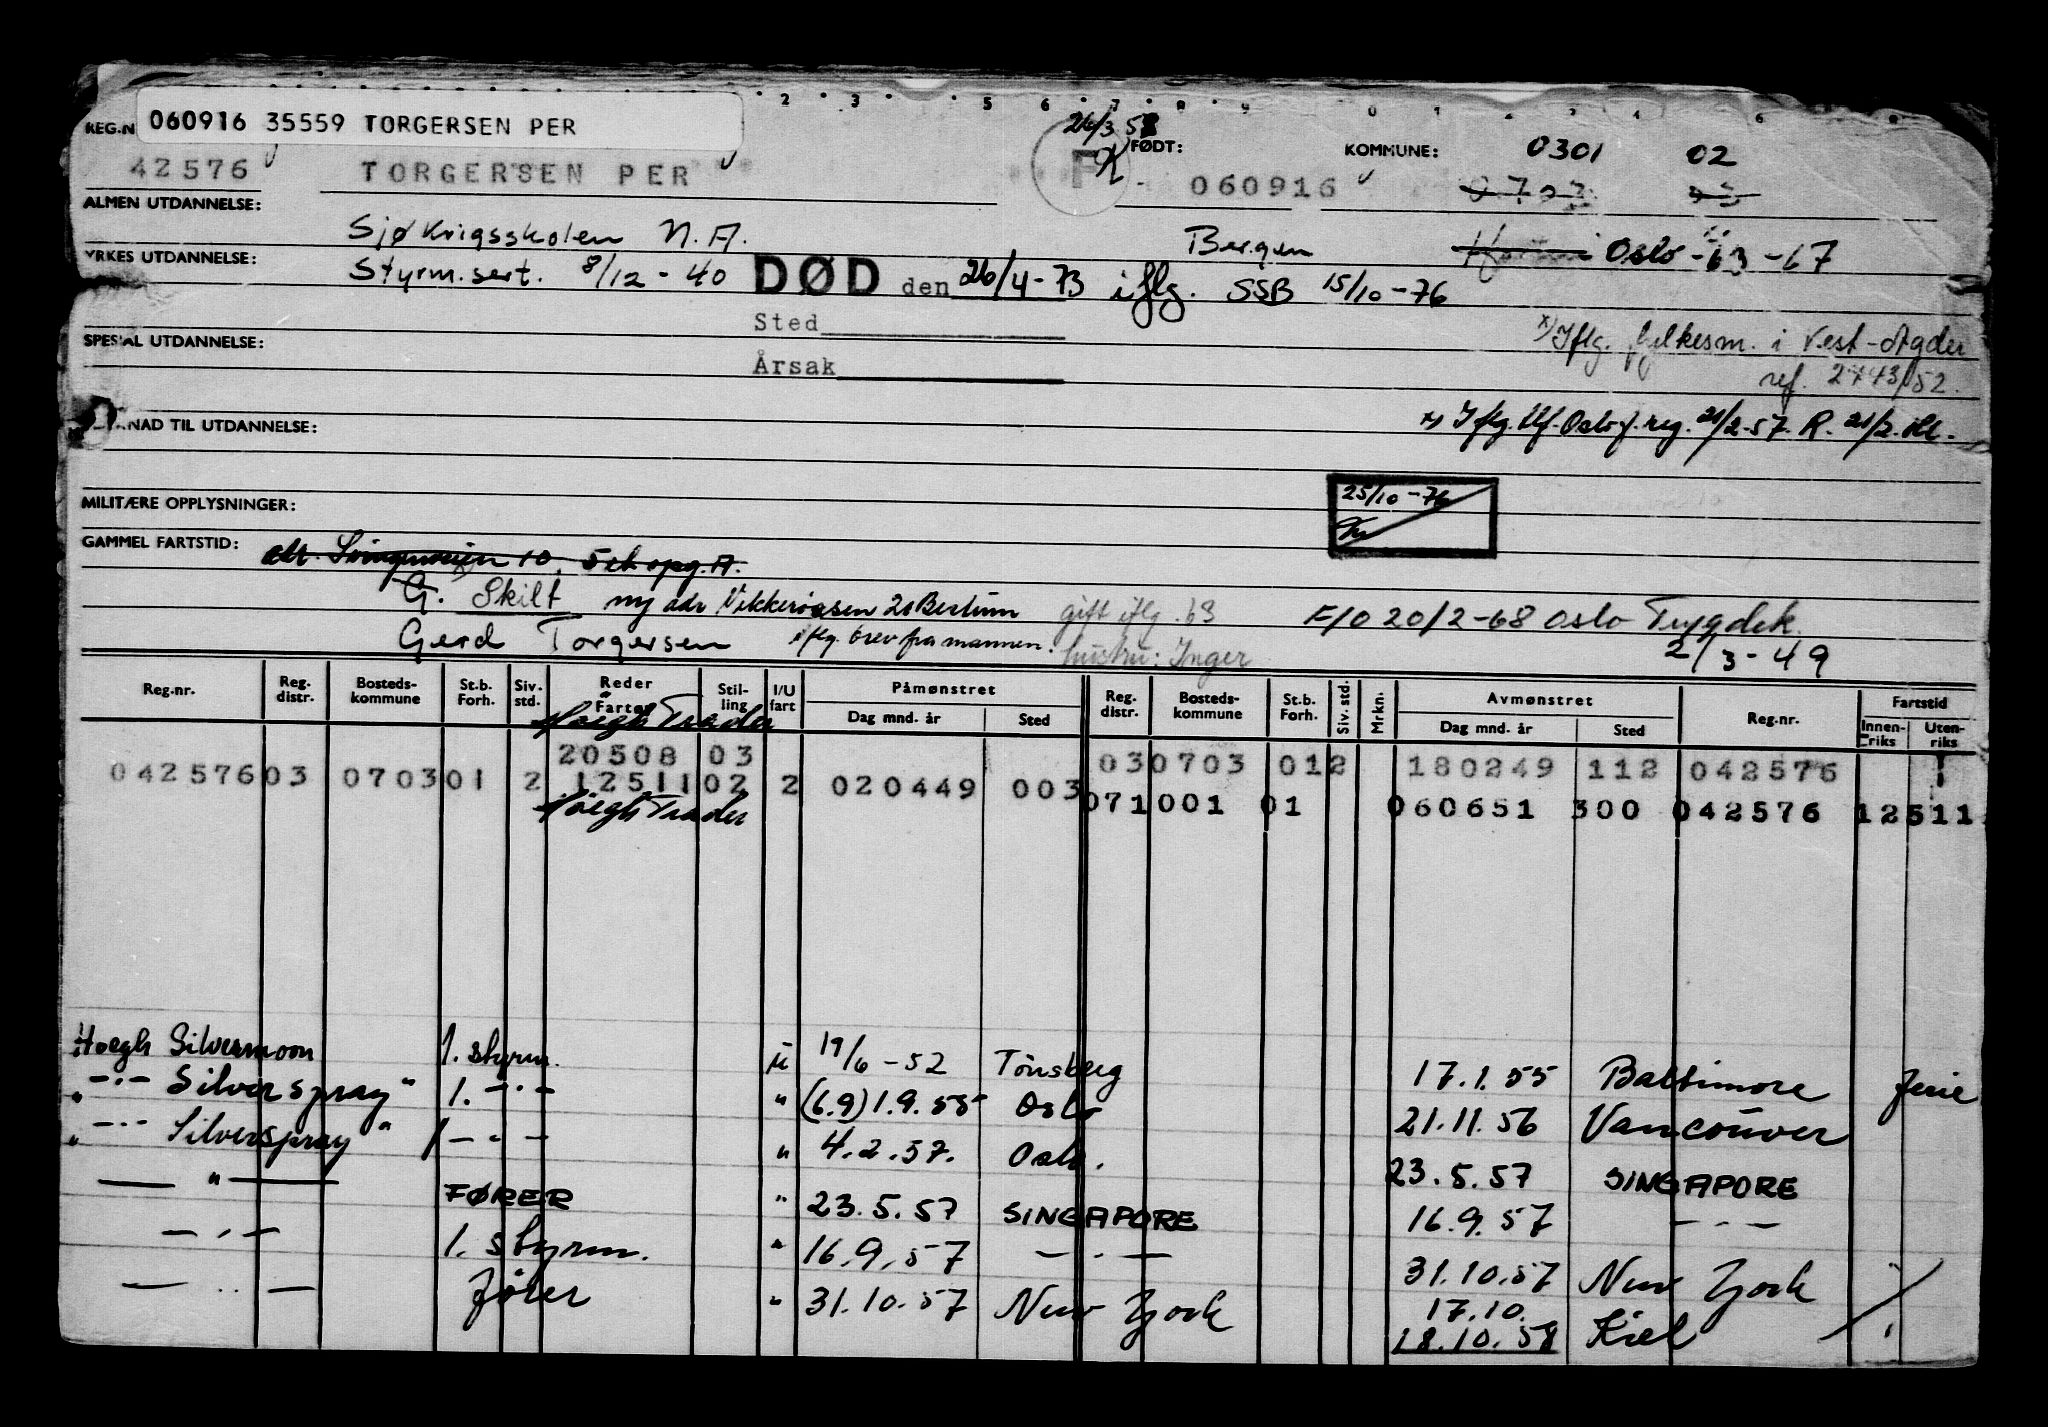 2 3 5 6 7 8 9 0 1 2 3 4 6 8
REG.N 060916 35559 TORGERSEN PER
26/3 58
FØDT: KOMMUNE: 0301 02
42576 TORGERSEN PER F 060916
ALMEN UTDANNELSE: Sjøkrigsskolen N.A. Bergen Oslo -63-67
YRKES UTDANNELSE: Styrm.sert. 8/12-40 DØD den 26/4-73 iflg. SSB 15/10-76
Sted
x) Iflg. fylkesm. i Vest-Agder
SPESIAL UTDANNELSE: Årsak
ref. 2443/52.
NAD TIL UTDANNELSE: x) Iflg Oslo f.reg. 21/2-57. R. 21/2.
MILITÆRE OPPLYSNINGER: 25/10-76
GAMMEL FARTSTID: 10
G. Skilt ny adr 20 Bestum gift iflg. 63 F/O 20/2-68 Oslo Trygdek.
Gerd Torgersen iflg. brev fra mannen. hustru: Inger 2/3-49
Reg.nr. Reg. distr. Bosteds-kommune St.b. Forh. Siv. std. Reder Fartøy Stil-ling I/U fart Påmønstret Dag mnd. år Sted Reg. distr. Bosteds-kommune St.b. Forh. Siv. std. Mrkn. Avmønstret Dag mnd. år Sted Reg.nr. Fartstid Innen-riks Uten-riks
Høegh Trader
20508 03 030703 012 180249 112 042576
042576 03 0703 01 2 12511 02 2 020449 003 071001 01 060651 300 042576 12511
Høegh Trader
Hoegh Silvermoon 1. styrm. u 19/6-52 Tønsberg 17.1.55 Baltimore ferie
" -"- Silverspray" 1. -"- " (6.9) 1.9.55 Oslo 21.11.56 Vancouver
" -"- Silverspray" 1 -"- " 4.2.57. Oslo. 23.5.57 SINGAPORE
-"- FØRER " 23.5.57 SINGAPORE 16.9.57 -"-
-"- 1. styrm. " 16.9.57 -"- 31.10.57 New York
-"- fører " 31.10.57 New York 17.10.
18.10.58 Kiel